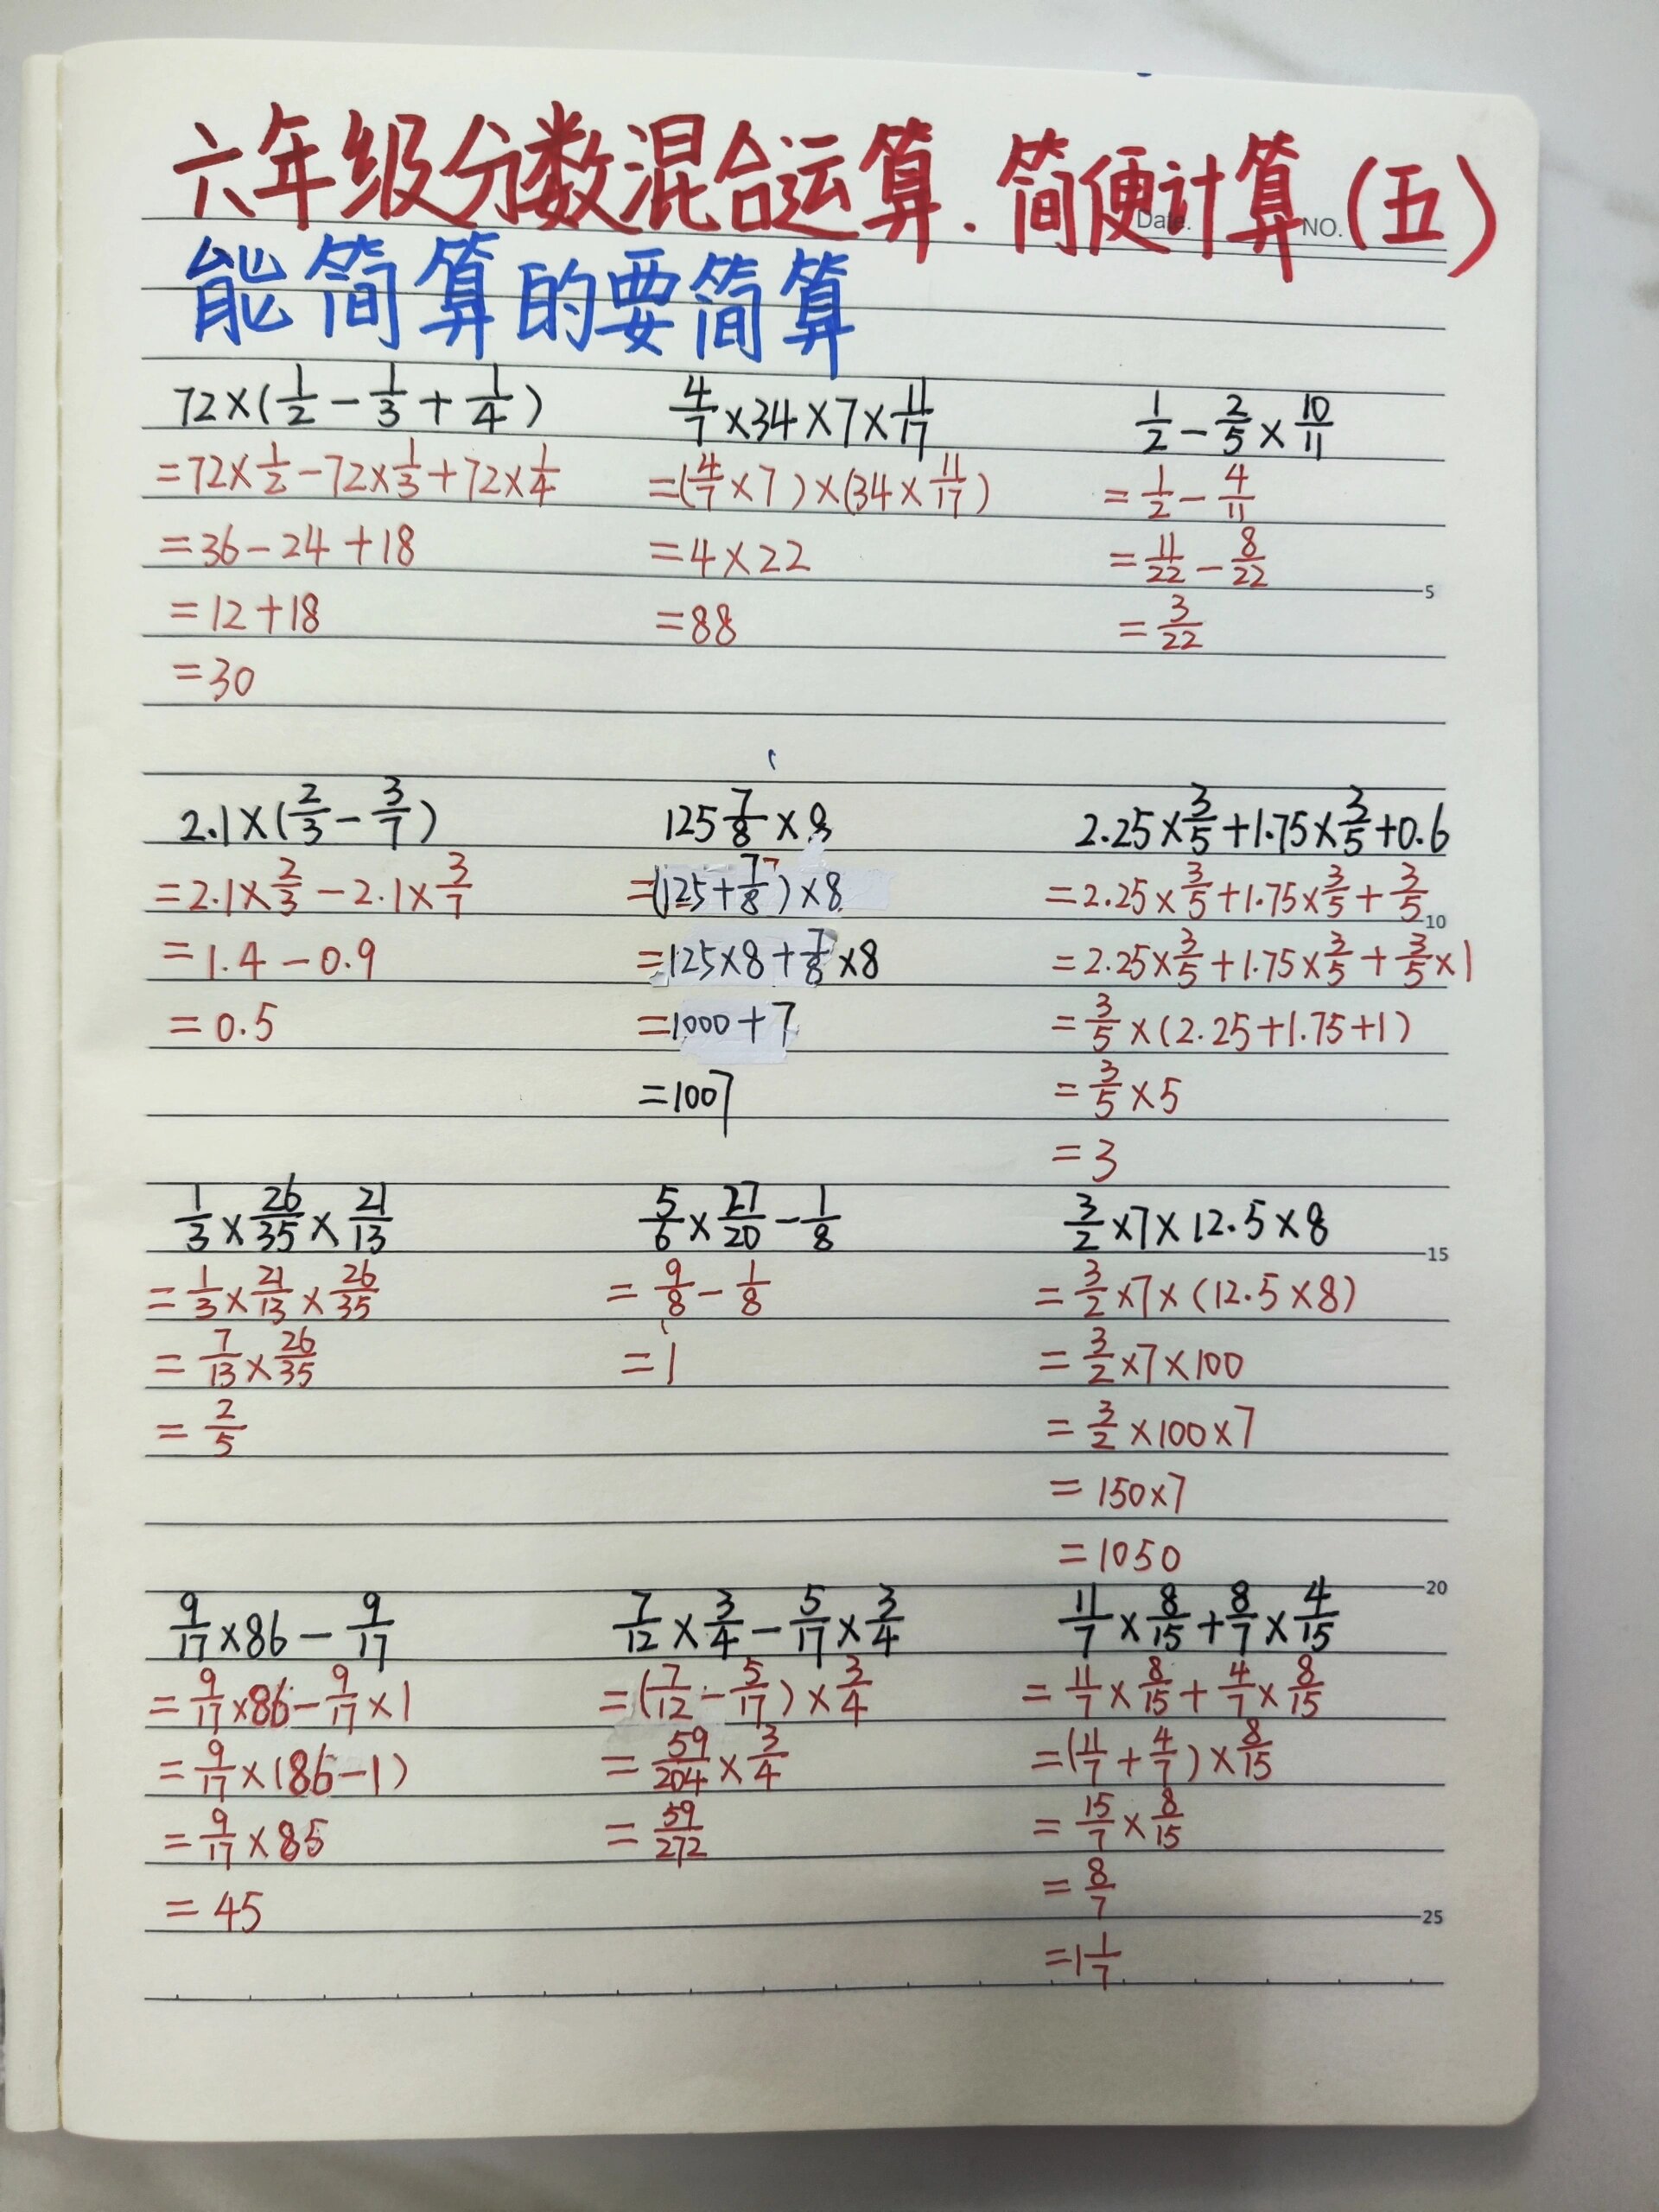 六年级分数混合运算.简便计算(五)
Date. NO.
能简算的要简算
72×(1/2-1/3+1/4)
=72×1/2-72×1/3+72×1/4
=36-24+18
=12+18
=30
4/7×34×7×11/17
=(4/7×7)×(34×11/17)
=4×22
=88
1/2-2/5×10/11
=1/2-4/11
=11/22-8/22
=3/22
5
2.1×(2/3-3/7)
=2.1×2/3-2.1×3/7
=1.4-0.9
=0.5
125 7/8×8
=(125+7/8)×8
=125×8+7/8×8
=1000+7
=1007
2.25×3/5+1.75×3/5+0.6
=2.25×3/5+1.75×3/5+3/5
10
=2.25×3/5+1.75×3/5+3/5×1
=3/5×(2.25+1.75+1)
=3/5×5
=3
1/3×26/35×21/13
=1/3×21/13×26/35
=7/13×26/35
=2/5
5/6×27/20-1/8
=9/8-1/8
=1
3/2×7×12.5×8
15
=3/2×7×(12.5×8)
=3/2×7×100
=3/2×100×7
=150×7
=1050
20
9/17×86-9/17
=9/17×86-9/17×1
=9/17×(86-1)
=9/17×85
=45
7/12×3/4-5/17×3/4
=(7/12-5/17)×3/4
=59/204×3/4
=59/272
11/7×8/15+8/7×4/15
=11/7×8/15+4/7×8/15
=(11/7+4/7)×8/15
=15/7×8/15
=8/7
25
=1 1/7